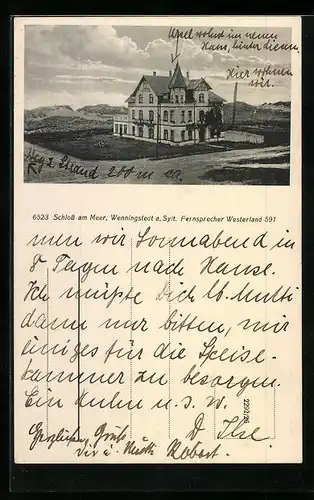 Ursel wohnt im neuen
Haus, hinter diesem.
Hier wohnen
wir.
Strand 200 m ca.
6523 Schloß am Meer, Wenningstedt a. Sylt. Fernsprecher Westerland 591
men wir Sonnabend in
8 Tagen nach Hause.
Ich müßte Dich lb. Mutti
dann nur bitten, mir
einiges für die Speise-
kammer zu besorgen.
Ein Huhn u. s. w.
Herzlichen Gruß D Ilse
u. Mutti Robert.
2293/26